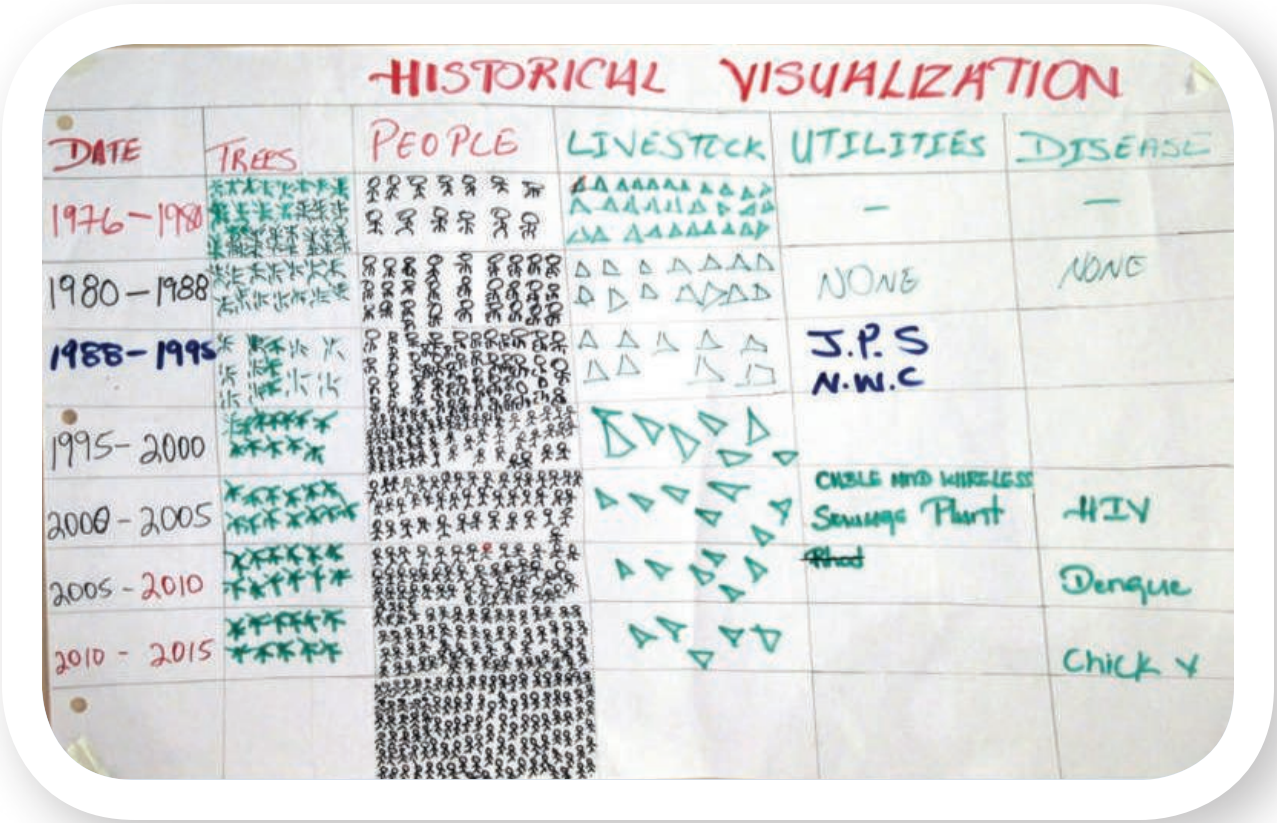 HISTORICAL VISUALIZATION
DATE TREES PEOPLE LIVESTOCK UTILITIES DISEASE
1976-1980 - -
1980-1988 NONE NONE
1988-1995 J.P.S
N.W.C
1995-2000
2000-2005 CABLE AND WIRELESS
Sewage Plant HIV
2005-2010 Dengue
2010-2015 Chick V